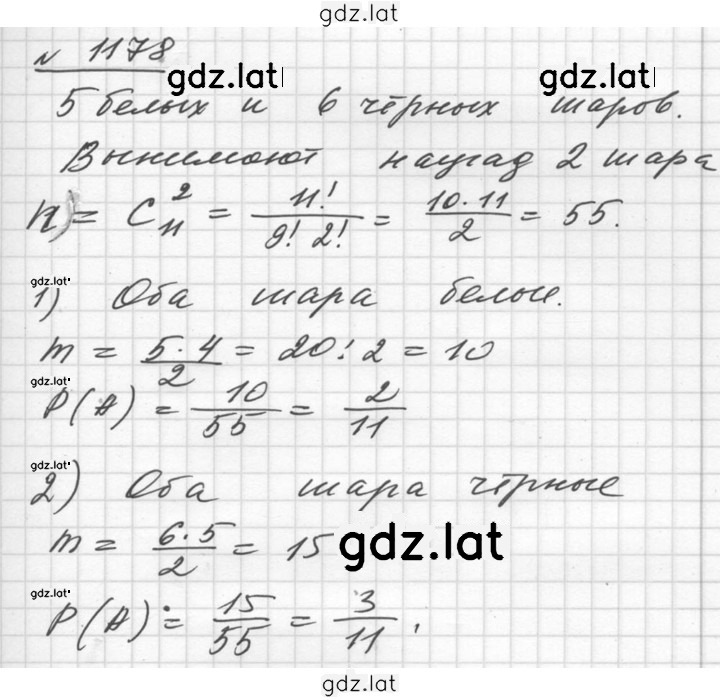 gdz.lat
№ 1178
gdz.lat
5 белых и 6 чёрных шаров.
Вынимают наугад 2 шара
n = C₁₁² = 11!/(9! 2!) = (10·11)/2 = 55.
gdz.lat
1) Оба шара белые.
m = (5·4)/2 = 20:2 = 10
gdz.lat
P(A) = 10/55 = 2/11
gdz.lat
2) Оба шара чёрные
m = (6·5)/2 = 15
gdz.lat
gdz.lat
P(A) = 15/55 = 3/11.
gdz.lat